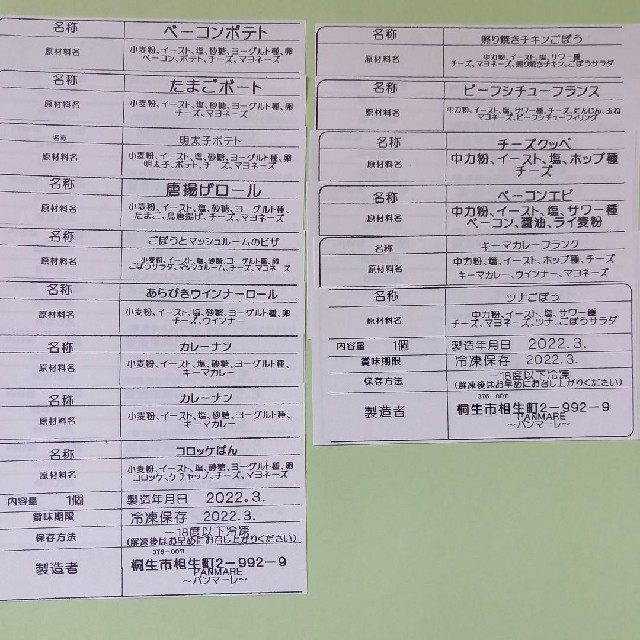 名称 ベーコンポテト
原材料名 小麦粉、イースト、塩、砂糖、ヨーグルト種、卵
ベーコン、ポテト、チーズ、マヨネーズ
名称 たまごボート
原材料名 小麦粉、イースト、塩、砂糖、ヨーグルト種、卵
チーズ、マヨネーズ
名称 明太子ポテト
原材料名 小麦粉、イースト、塩、砂糖、ヨーグルト種、卵
明太子、ポテト、チーズ、マヨネーズ
名称 唐揚げロール
原材料名 小麦粉、イースト、塩、砂糖、ヨーグルト種、
たまご、鳥唐揚げ、チーズ、マヨネーズ
名称 ごぼうとマッシュルームのピザ
原材料名 小麦粉、イースト、塩、砂糖、ヨーグルト種、卵
ごぼうサラダ、マッシュルーム、チーズ、マヨネーズ
名称 あらびきウインナーロール
原材料名 小麦粉、イースト、塩、砂糖、ヨーグルト種、卵
チーズ、ウインナー
名称 カレーナン
原材料名 小麦粉、イースト、塩、砂糖、ヨーグルト種、
キーマカレー
名称 カレーナン
原材料名 小麦粉、イースト、塩、砂糖、ヨーグルト種、
キーマカレー
名称 コロッケぱん
原材料名 小麦粉、イースト、塩、砂糖、ヨーグルト種、卵
コロッケ、ケチャップ、チーズ、マヨネーズ
内容量 1個 製造年月日 2022.3.
賞味期限 冷凍保存 2022.3.
保存方法 －18度以下冷凍
(解凍後はお早めにお召し上がりください)
製造者 376-0011
桐生市相生町2－992－9
PANMARE
～パンマーレ～
名称 照り焼きチキンごぼう
原材料名 中力粉、イースト、塩、サワー種
チーズ、マヨネーズ、照り焼きチキン、ごぼうサラダ
名称 ビーフシチューフランス
原材料名 中力粉、イースト、塩、サワー種、チーズ、にんじん、玉ねぎ
マヨネーズ、ビーフシチューフィリング
名称 チーズクッペ
原材料名 中力粉、イースト、塩、ホップ種
チーズ
名称 ベーコンエピ
原材料名 中力粉、イースト、塩、サワー種
ベーコン、醤油、ライ麦粉
名称 キーマカレーフランク
原材料名 中力粉、塩、イースト、ホップ種、チーズ
キーマカレー、ウインナー、マヨネーズ
名称 ツナごぼう
原材料名 中力粉、イースト、塩、サワー種
チーズ、マヨネーズ、ツナ、ごぼうサラダ
内容量 1個 製造年月日 2022.3.
賞味期限 冷凍保存 2022.3.
保存方法 －18度以下冷凍
(解凍後はお早めにお召し上がりください)
製造者 376-0011
桐生市相生町2－992－9
PANMARE
～パンマーレ～